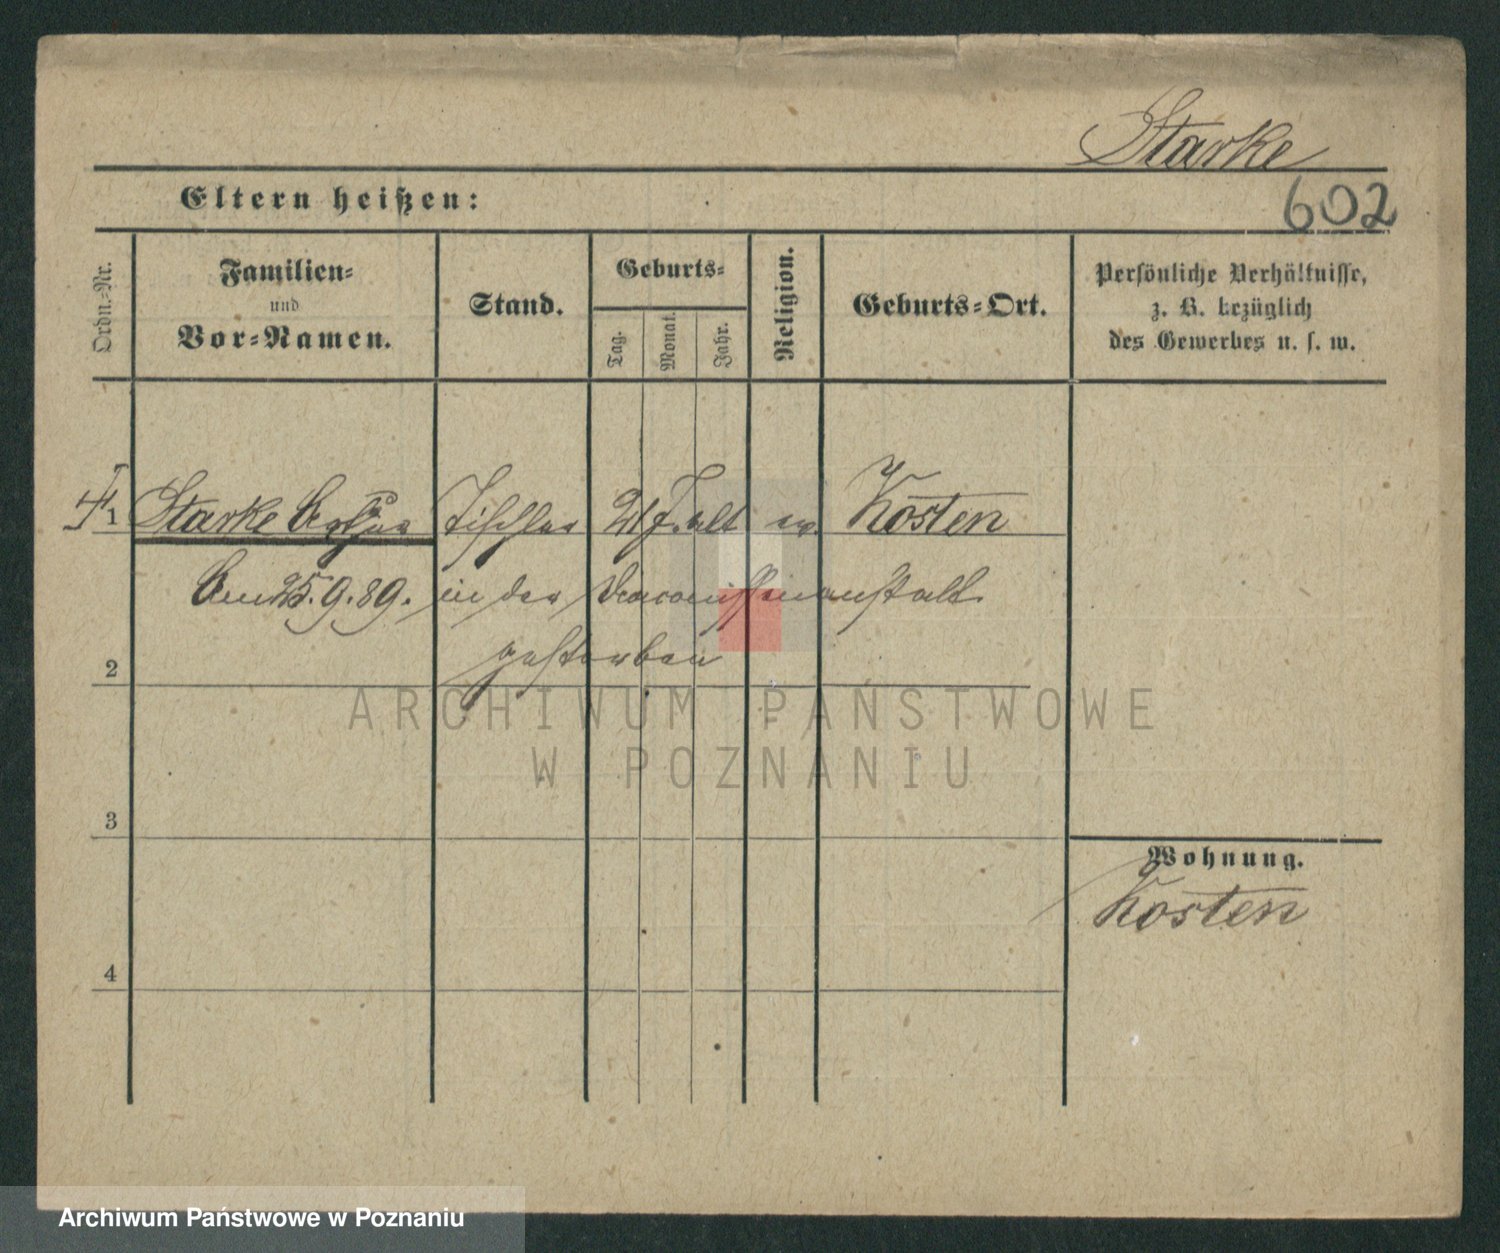 Starke
Eltern heißen:
602
Ordn.-Nr.
Familien-
und
Vor-Namen.
Stand.
Geburts-
Tag.
Monat.
Jahr.
Religion.
Geburts-Ort.
Persönliche Verhältnisse,
z. B. bezüglich
des Gewerbes u. s. w.
1 Starke Arthur Tischler 21 J. alt ev. Kosten
Am 25.9.89. in der Diaconissenanstalt
gestorben
2
3
4
Wohnung.
Kosten
ARCHIWUM PAŃSTWOWE
W POZNANIU
Archiwum Państwowe w Poznaniu